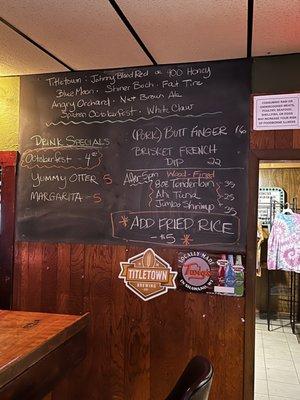 Titletown: Johnny Blood Red or 400 Honey
Blue Moon · Shiner Bock · Fat Tire
Angry Orchard · Nut Brown Ale
Spaten Octoberfest · White Claw
Drink Specials
Octoberfest - 4
Yummy Otter 5
Margarita - 5
(Pork) Butt Finger 16
Brisket French
Dip 22
After 5pm Wood-Fired
8oz Tenderloin 35
Ahi Tuna 25
Jumbo Shrimp 35
* Add Fried Rice
$5 *
TITLETOWN
BREWING
LOCALLY MADE
Twig's
IN SHAWANO, WI
CONSUMING RAW OR
UNDERCOOKED MEATS,
POULTRY, SEAFOOD,
SHELLFISH, OR EGGS
MAY INCREASE YOUR
RISK OF FOODBORNE
ILLNESS